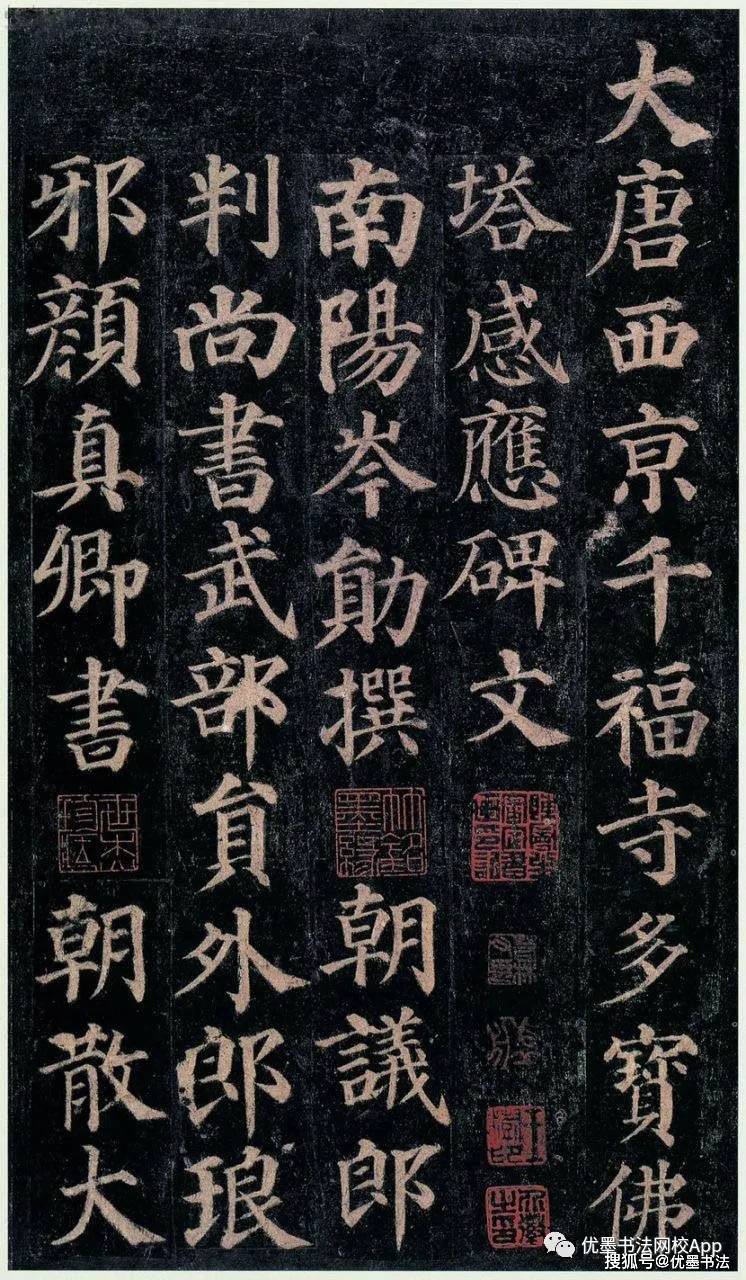 大唐西京千福寺多寶佛
塔感應碑文
南陽岑勛撰
朝議郎
判尚書武部員外郎琅
邪顏真卿書
朝散大
优墨书法网校App
搜狐号@优墨书法